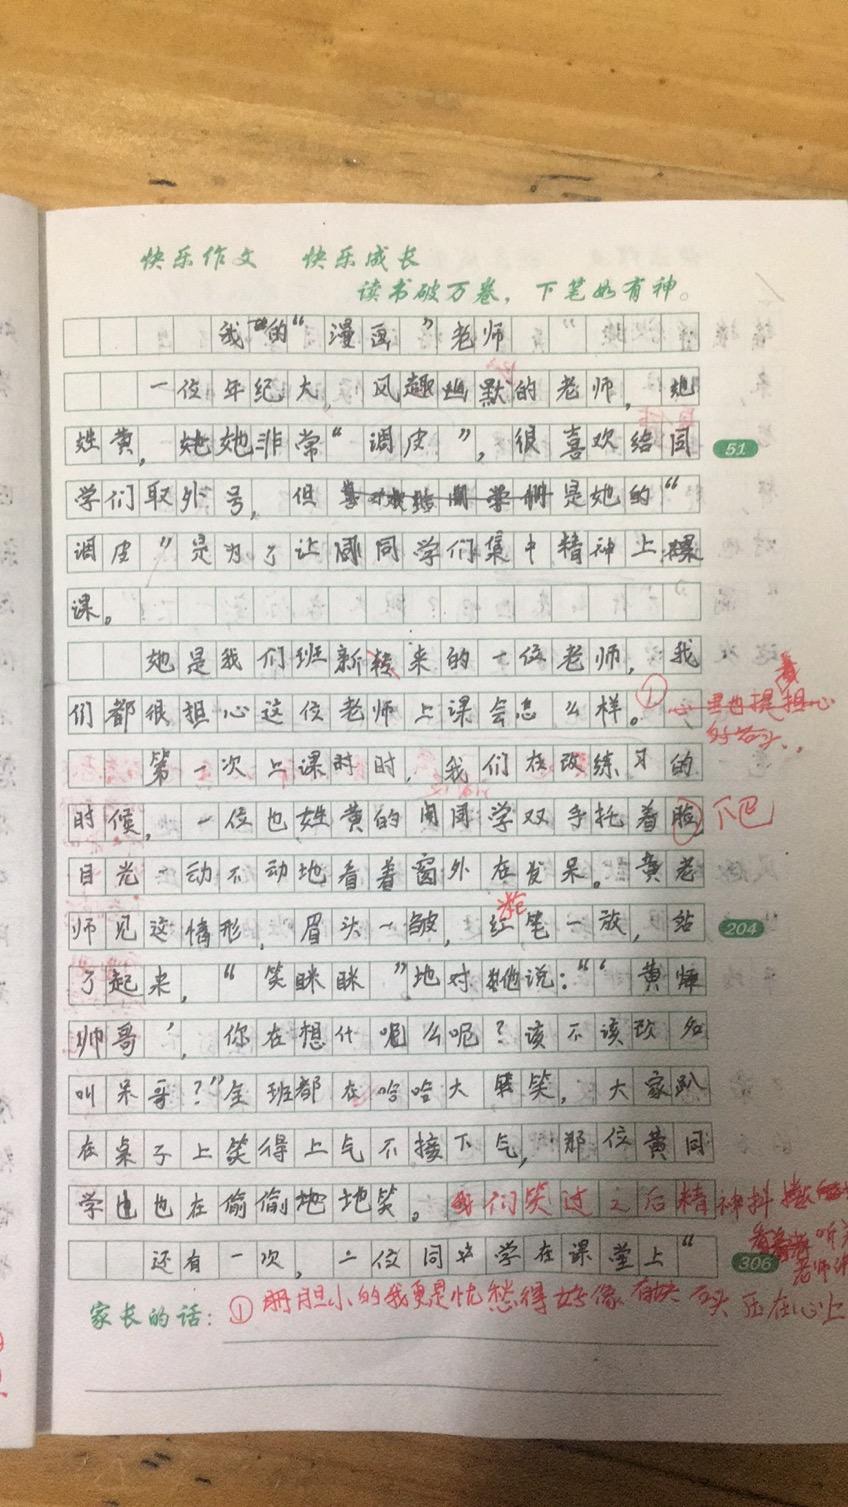 快乐作文 快乐成长
读书破万卷，下笔如有神。
我的“漫画”老师
一位年纪大，风趣幽默的老师，她
姓黄，她她非常“调皮”，很喜欢给同
学们取外号，但是她的“
调皮”是为了让同同学们集中精神上课
课。
她是我们班新转来的一位老师，我
们都很担心这位老师上课会怎么样。①
第一次上课时时，我们在改练习的
时候，一位也姓黄的同同学双手托着脸 下巴
目光一动不动地看着窗外在发呆。黄老
师见这情形，眉头一皱，红笔一放，站
204
了起来，“笑眯眯”地对他说：“‘黄帅
帅哥’，你在想什呢么呢？该不该改名
叫呆哥？”全班都在哈哈大笑，大家趴
在桌子上笑得上气不接下气，那位黄同
学也也在偷偷地地笑。我们笑过之后精神抖擞 听
老师讲
还有一次，一位同学学在课堂上“
306
51
家长的话：①胆小的我更是忧愁得好像有块石头压在心上